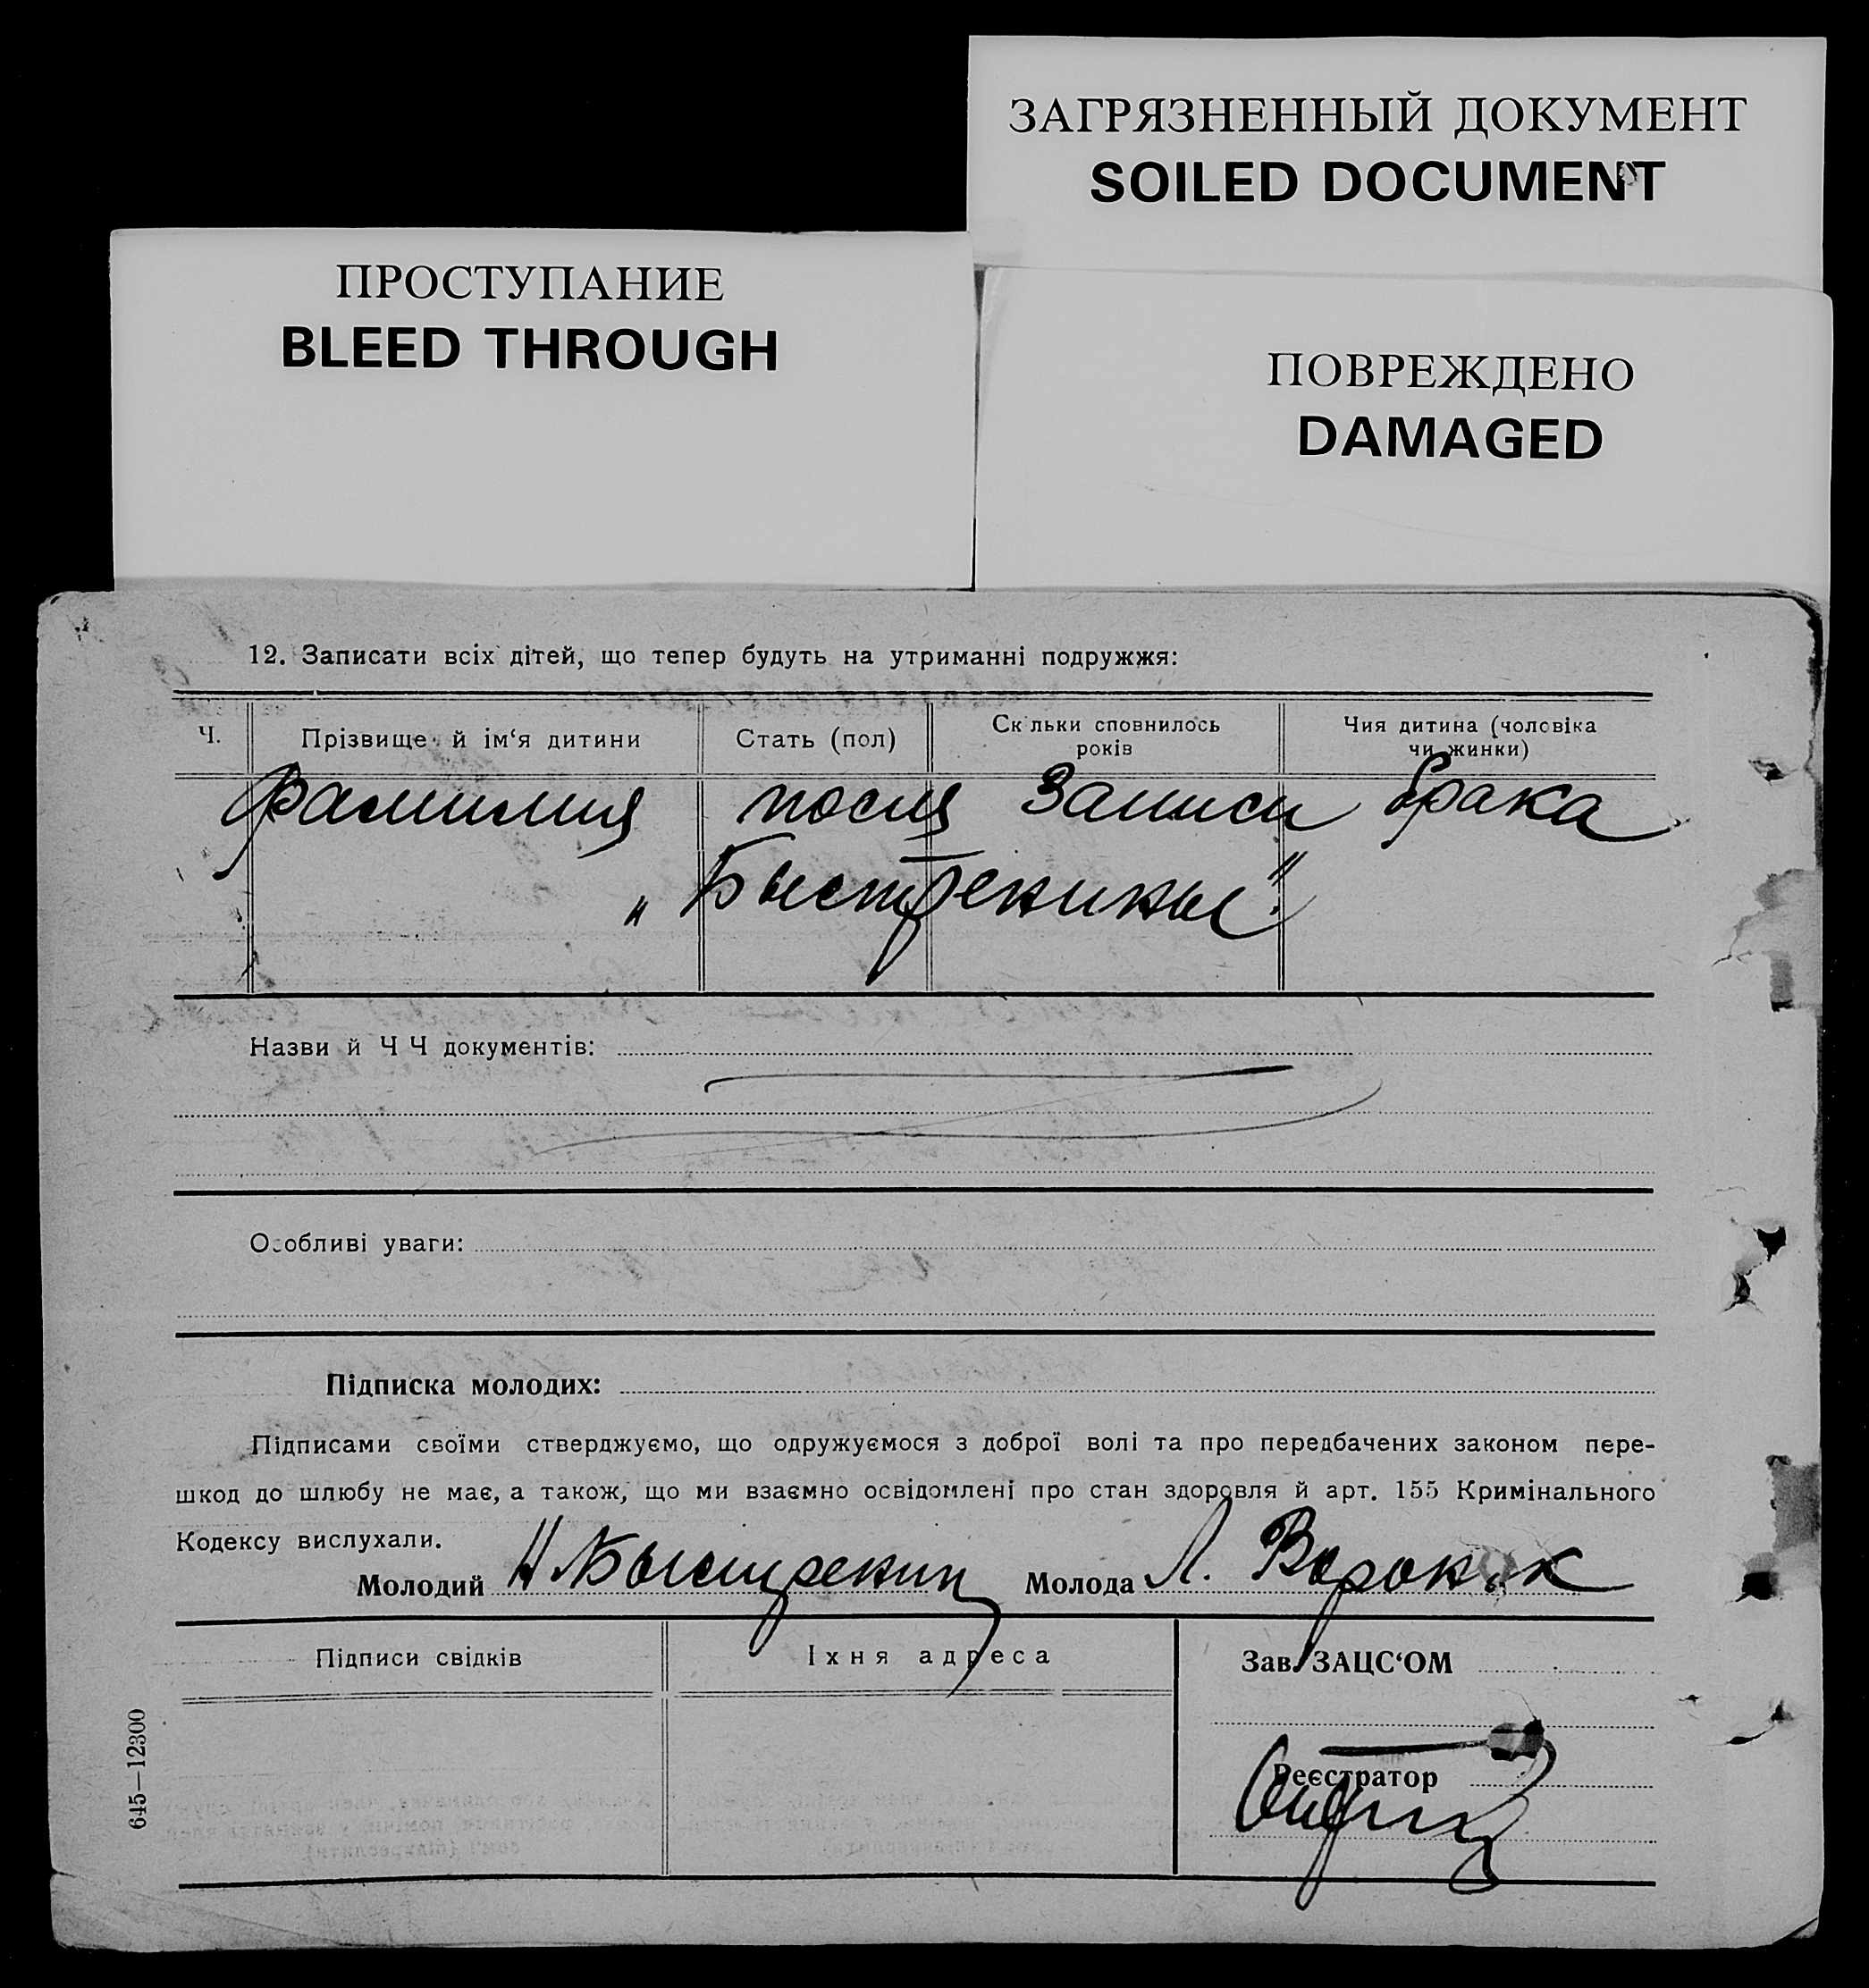 ЗАГРЯЗНЕННЫЙ ДОКУМЕНТ
SOILED DOCUMENT
ПРОСТУПАНИЕ
BLEED THROUGH
ПОВРЕЖДЕНО
DAMAGED
12. Записати всіх дітей, що тепер будуть на утриманні подружжя:
Ч. Прізвище й ім‘я дитини Стать (пол) Ск льки сповнилось років Чия дитина (чоловіка чи жинки)
Фамилия посля Записи брака
„Быстренины"
Назви й Ч Ч документів:
Особливі уваги:
Підписка молодих:
Підписами своїми стверджуємо, що одружуємося з доброї волі та про передбачених законом пере-
шкод до шлюбу не має, а також, що ми взаємно освідомлені про стан здоровля й арт. 155 Кримінального
Кодексу вислухали.
Молодий Н Быстренин Молода Л. Воронюк
Підписи свідків Їхня адреса Зав. ЗАЦС‘ОМ
Реєстратор
645—12300